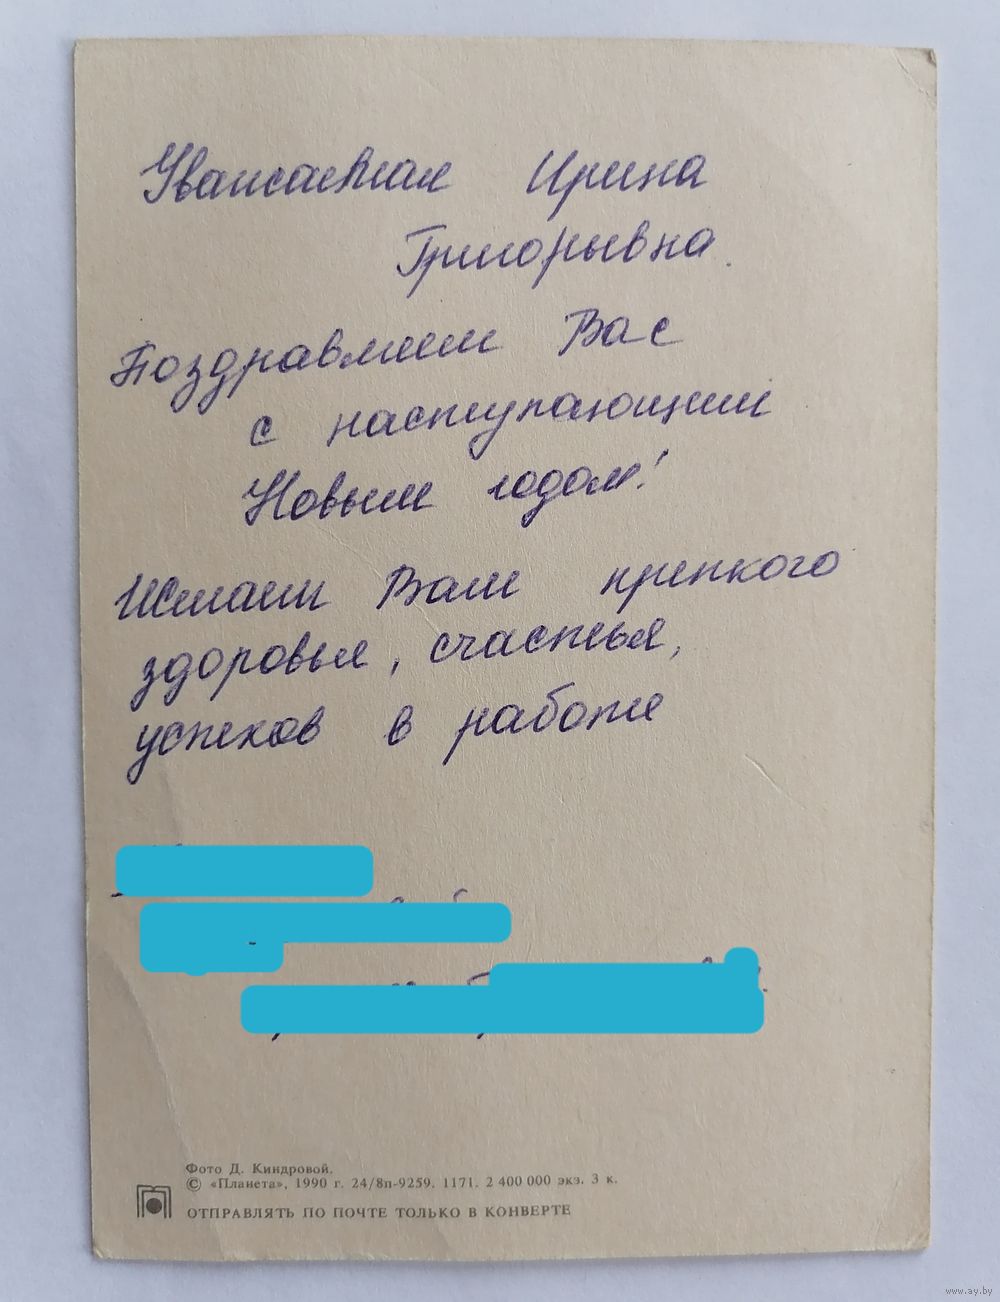 Уважаемая Ирина
Григорьевна.
Поздравляем Вас
с наступающим
Новым годом!
Желаем Вам крепкого
здоровья, счастья,
успехов в работе
Фото Д. Киндровой.
© «Планета», 1990 г. 24/8п-9259. 1171. 2 400 000 экз. 3 к.
ОТПРАВЛЯТЬ ПО ПОЧТЕ ТОЛЬКО В КОНВЕРТЕ
www.ay.by